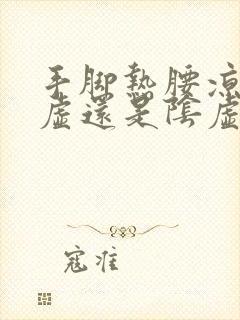 手脚熱腰凉
虛還是陰虛
寇准